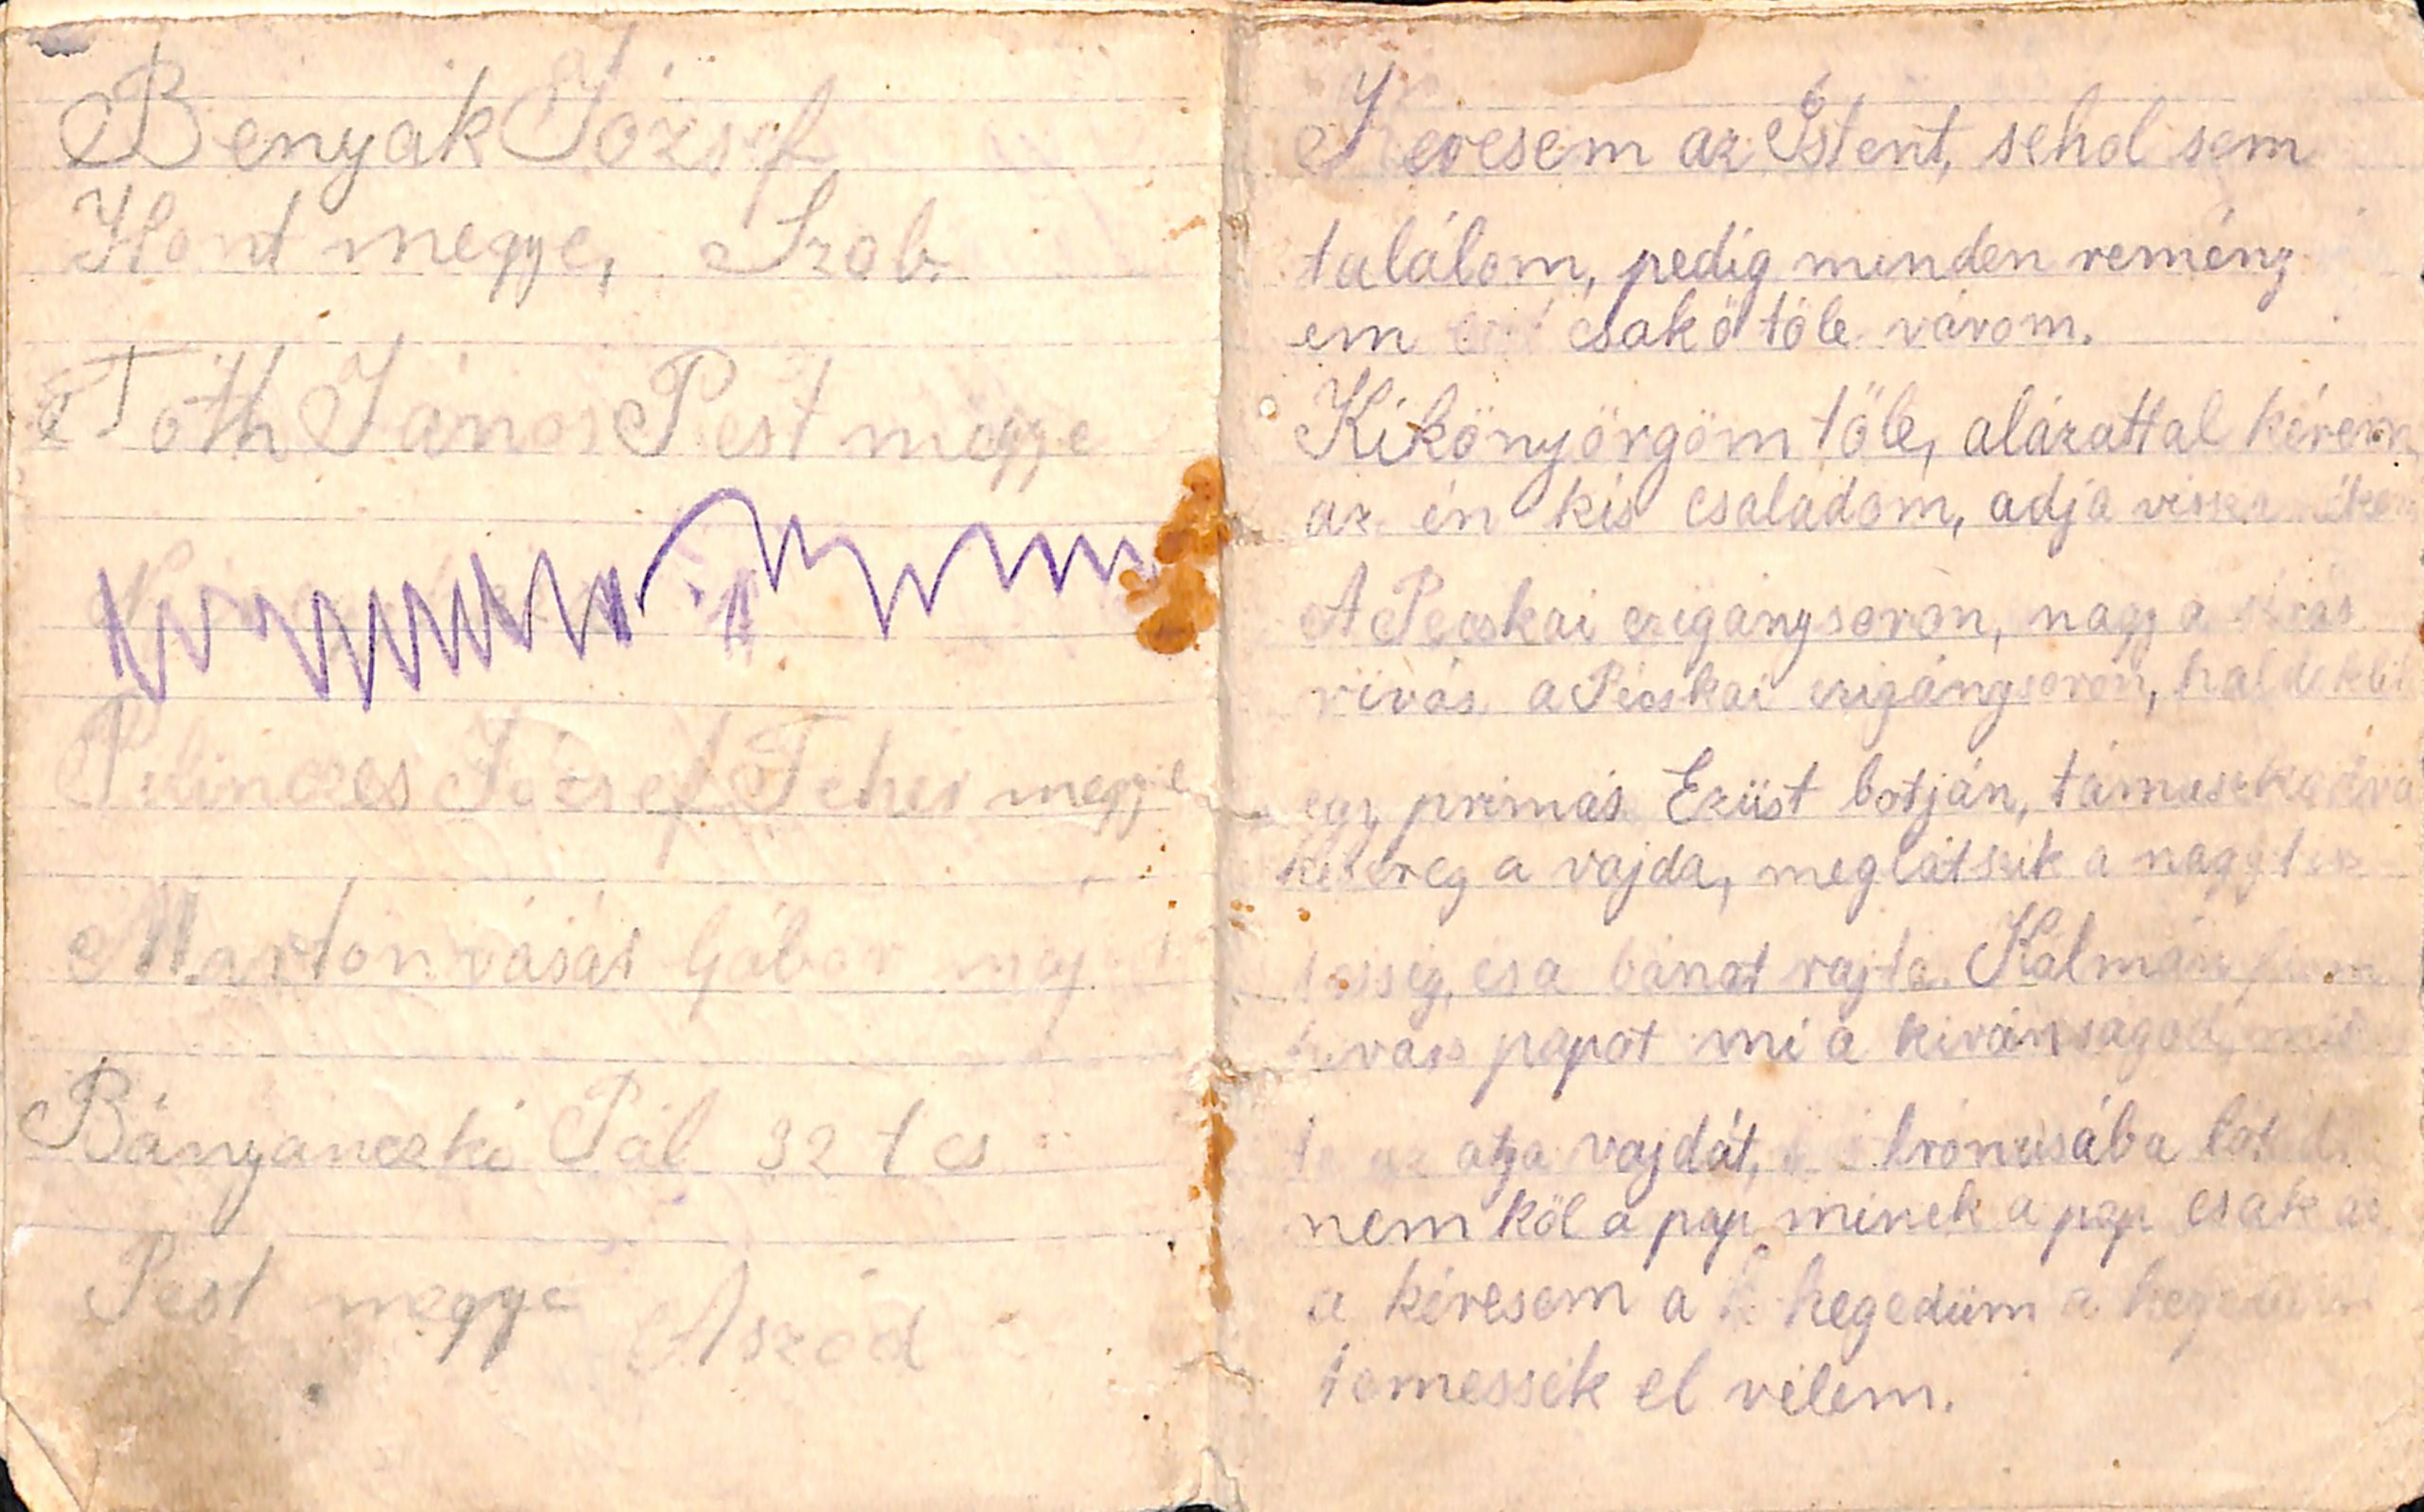 Benyák József
Hont megye, Szob.
Tóth János Pest megye
József Feher megye
Martonvásár Gábor maj
Bányánczki Pál 32 t cs
Pest megye Aszód
Keresem az Istent, sehol sem
találom, pedig minden remény
em csak ő töle várom.
Kikönyörgöm töle, alázattal kérem
az én kis családom, adja vissza nékem
A Pécskai czigánysoron, nagy a sirás
rivás a Pécskai czigánysoron, haldoklik
egy primás. Ezüst botján, támaszkodva
kesereg a vajda, meglátszik a nagy
és a bánat rajta. Kálmán
papot mi a kivánságod,
az atya vajdát,
nem köl a pap minek a pap csak az
a kéresem a hegedüm a hegedüm
temessék el vélem.